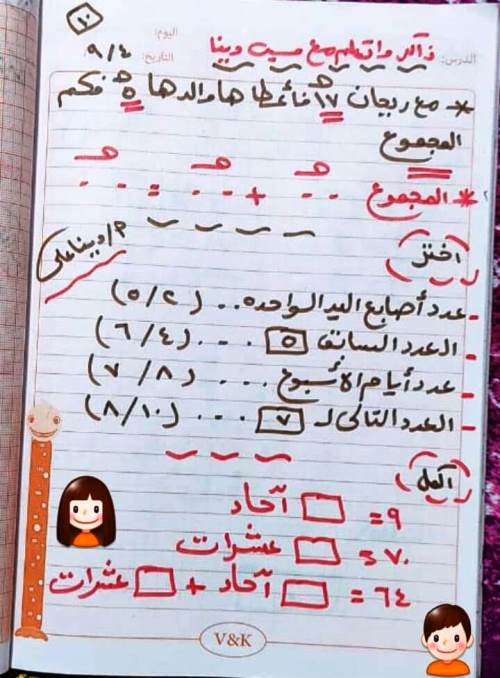 ١٠
الدرس: ذاكر واتعلم مع ميس دينا
اليوم:
التاريخ: ٩/٤
* مع ريجان ١٧ هـ فأعطاها والدها ٥ هـ فكم
المجموع
* المجموع . . هـ + . . هـ = . . هـ
م/ دينا على
اختر
- عدد أصابع اليد الواحده .. (٥/٢)
- العدد السابق ٥ ... (٦/٤)
- عدد أيام الأسبوع ... (٧/٨)
- العدد التالى لـ ٧ ... (٨/١٠)
أكمل
٩ = □ آحاد
٧٠ = □ عشرات
٦٤ = □ آحاد + □ عشرات
V&K